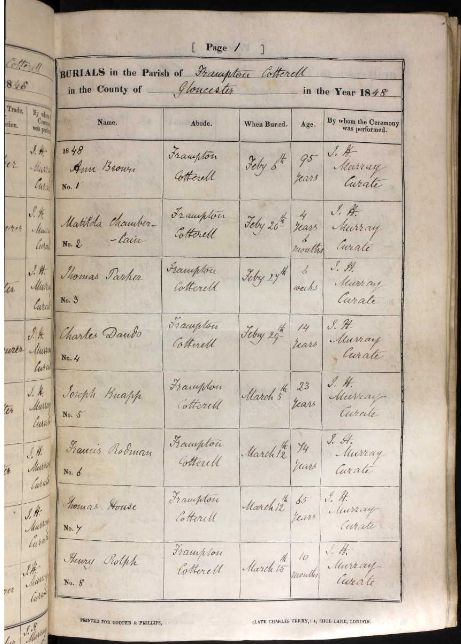 [ Page 1 ]
BURIALS in the Parish of Frampton Cotterell
in the County of Gloucester in the Year 1848
Name. Abode. When Buried. Age. By whom the Ceremony was performed.
1848
Ann Brown
No. 1
Frampton
Cotterell
Feby 6th
95
years
J. H.
Murray
Curate
Matilda Chamber-
-lain
No. 2
Frampton
Cotterell
Feby 26th
4
years
6
months
J. H.
Murray
Curate
Thomas Parker
No. 3
Frampton
Cotterell
Feby 27th
weeks
J. H.
Murray
Curate
Charles Dando
No. 4
Frampton
Cotterell
Feby 29th
14
years
J. H.
Murray
Curate
Joseph Knapp
No. 5
Frampton
Cotterell
March 5th
23
years
J. H.
Murray
Curate
Francis Rodman
No. 6
Frampton
Cotterell
March 12th
74
years
J. H.
Murray
Curate
Thomas House
No. 7
Frampton
Cotterell
March 12th
65
years
J. H.
Murray
Curate
Henry Rolph
No. 8
Frampton
Cotterell
March
10
months
J. H.
Murray
Curate
PRINTED FOR GODDER & PHILLIPS, (LATE CHARLES FERRY,) 4, HUGE-LANE, LONDON.